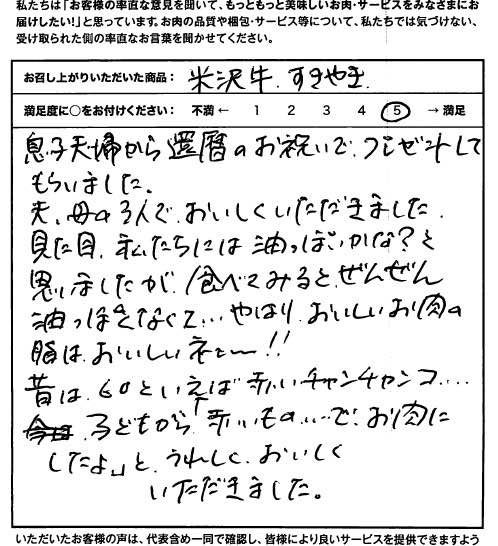 私たちは「お客様の率直な意見を聞いて、もっともっと美味しいお肉・サービスをみなさまにお
届けしたい!」と思っています。お肉の品質や梱包・サービス等について、私たちでは気づけない、
受け取られた側の率直なお言葉を聞かせてください。
お召し上がりいただいた商品: 米沢牛.すきやき.
満足度に○をお付けください: 不満 ← 1 2 3 4 5 → 満足
息子夫婦から還暦のお祝いで、プレゼントして
もらいました。
夫、母の3人で、おいしくいただきました.
見た目、私たちには油っぽいかな?と
思いましたが、食べてみると、ぜんぜん
油っぽくなくて…やはり、おいしいお肉の
脂は、おいしいネ~!!
昔は、60といえば「赤いチャンチャンコ....
子どもから「赤いもの…で、お肉に
したよ」と、うれしく、おいしく
いただきました。
いただいたお客様の声は、代表含め一同で確認し、皆様により良いサービスを提供できますよう